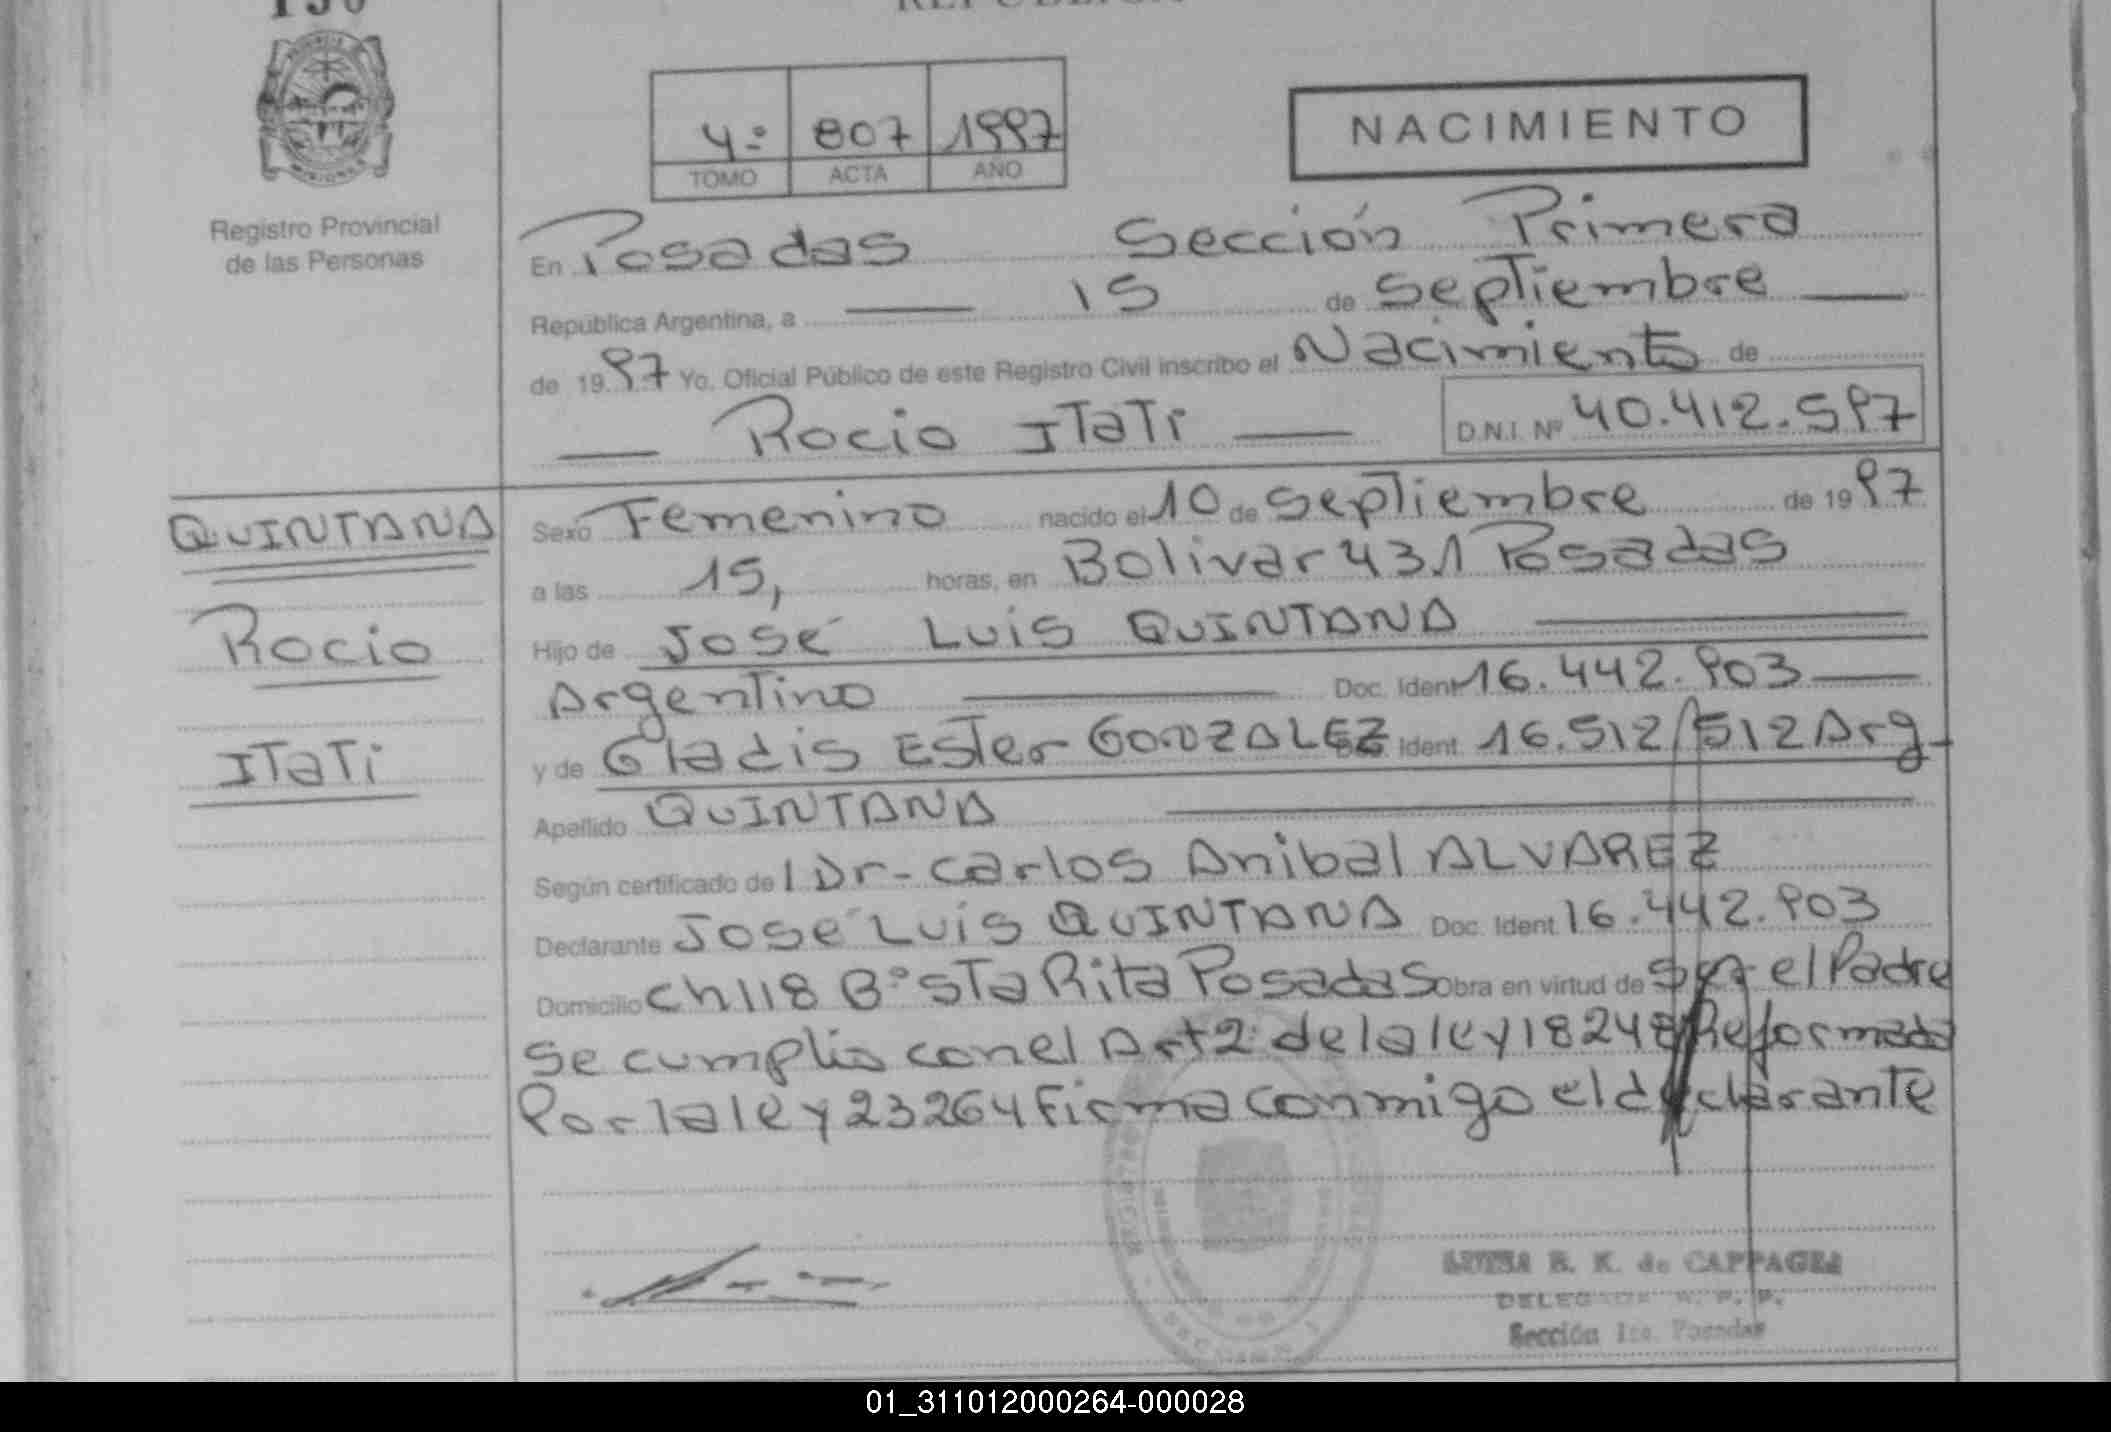 REPUBLICA
Registro Provincial
de las Personas
4º 807 1997
TOMO ACTA AÑO
NACIMIENTO
En Posadas Sección Primera
República Argentina, a 15 de Septiembre
de 1997 Yo, Oficial Público de este Registro Civil inscribo el Nacimiento de
Rocio ITaTi D.N.I. Nº 40.412.597
QUINTANA
Rocio
ITaTi
Sexo Femenino nacido el 10 de Septiembre de 1997
a las 15, horas, en Bolivar 431 Posadas
Hijo de José Luis QUINTANA
Argentino Doc. Ident 16.442.903
y de Gladis Ester GONZALEZ Ident. 16.512/512 Arg-
Apellido QUINTANA
Según certificado del Dr- Carlos Anibal ALVAREZ
Declarante José Luis QUINTANA Doc. Ident 16.442.903
Domicilio Ch 118 Bº Sta Rita Posadas Obra en virtud de Ser el Padre
Se cumplio con el Art 2: de la ley 18248 Reformada
Por la ley 23264 Firma conmigo el declarante
B. K. de CAPPAGLI
Sección 1ra. Posadas
01_311012000264-000028